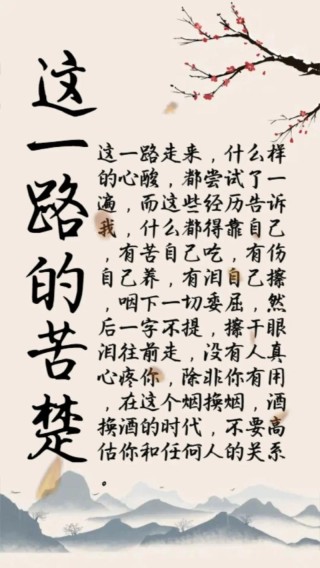 这一路的苦楚
这一路走来，什么样
的心酸，都尝试了一
遍，而这些经历告诉
我，什么都得靠自己
，有苦自己吃，有伤
自己养，有泪自己擦
，咽下一切委屈，然
后一字不提，擦干眼
泪往前走，没有人真
心疼你，除非你有用
，在这个烟换烟，酒
换酒的时代，不要高
估你和任何人的关系
。